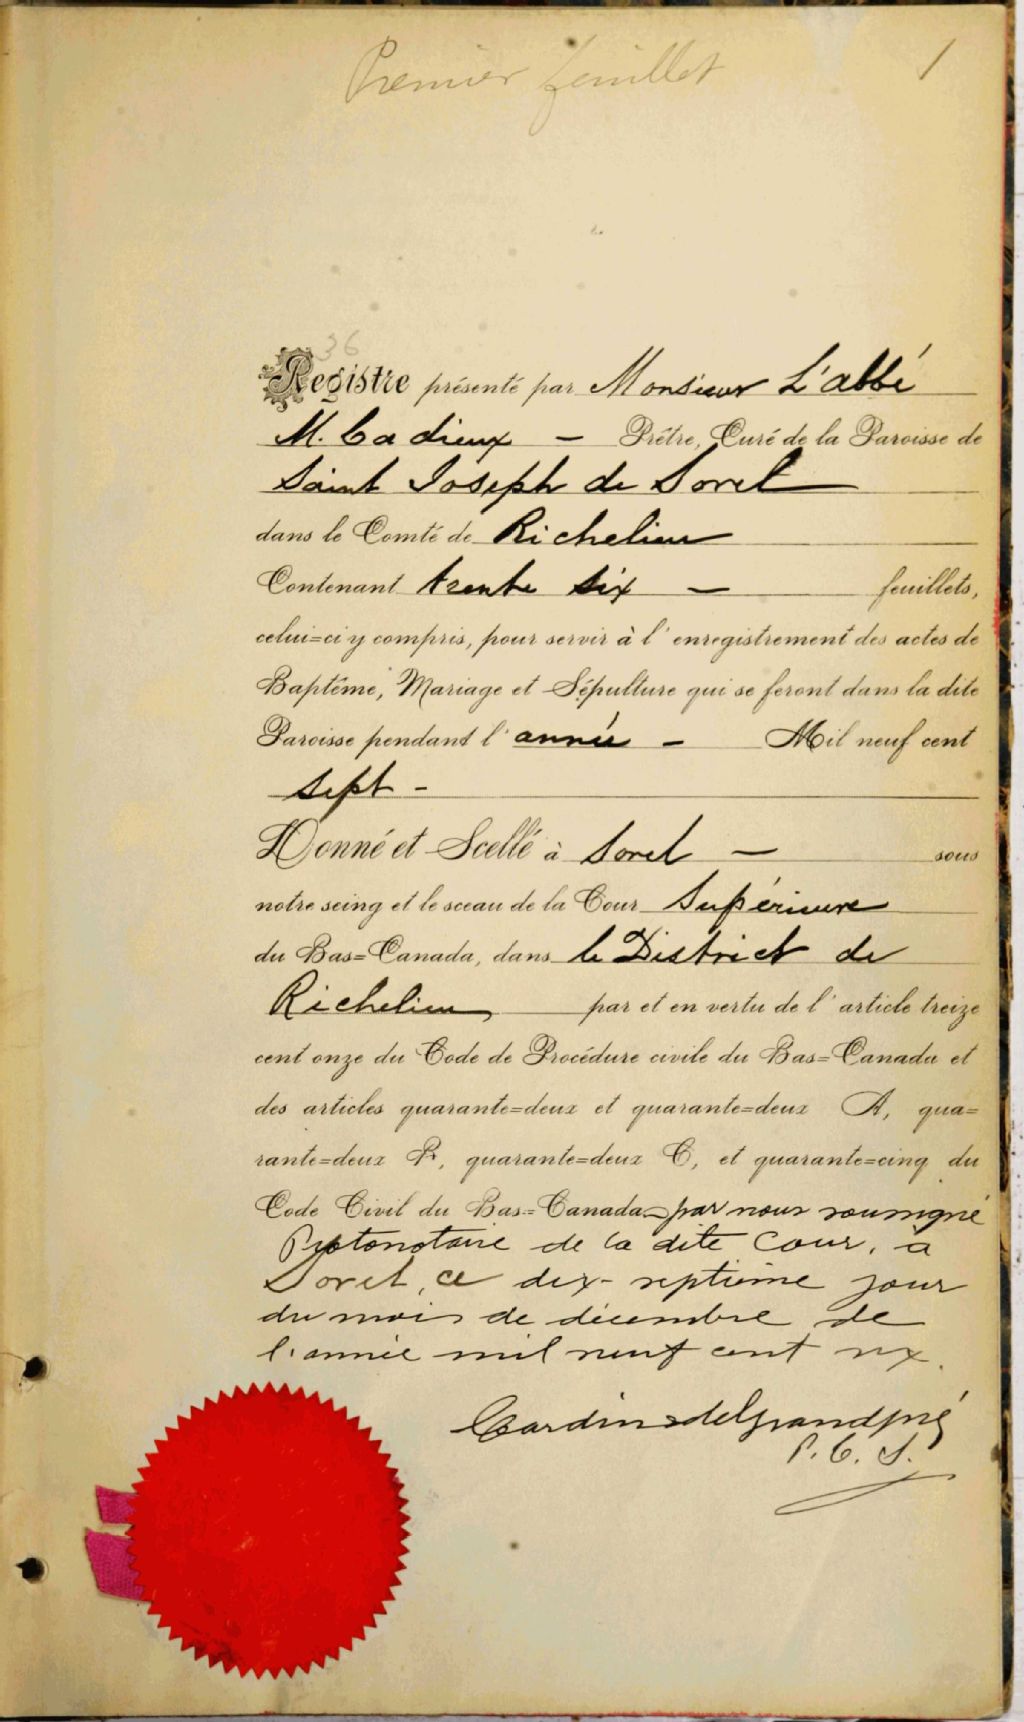 Premier feuillet 1
36
Registre présenté par Monsieur L'abbé
M. Cadieux – Prêtre, Curé de la Paroisse de
Saint Joseph de Sorel
dans le Comté de Richelieu
Contenant trente six – feuillets,
celui=ci y compris, pour servir à l'enregistrement des actes de
Baptême, Mariage et Sépulture qui se feront dans la dite
Paroisse pendant l'année – Mil neuf cent
sept –
Donné et Scellé à Sorel – sous
notre seing et le sceau de la Cour Supérieure
du Bas=Canada, dans le District de
Richelieu par et en vertu de l'article treize
cent onze du Code de Procédure civile du Bas=Canada et
des articles quarante=deux et quarante=deux A, qua=
rante=deux B, quarante=deux C, et quarante=cinq du
Code Civil du Bas=Canada – par nous soussigné
Protonotaire de la dite Cour, à
Sorel, ce dix-septième jour
du mois de décembre de
l'année mil neuf cent six.
Cardin & deGrandpré
P. C. S.